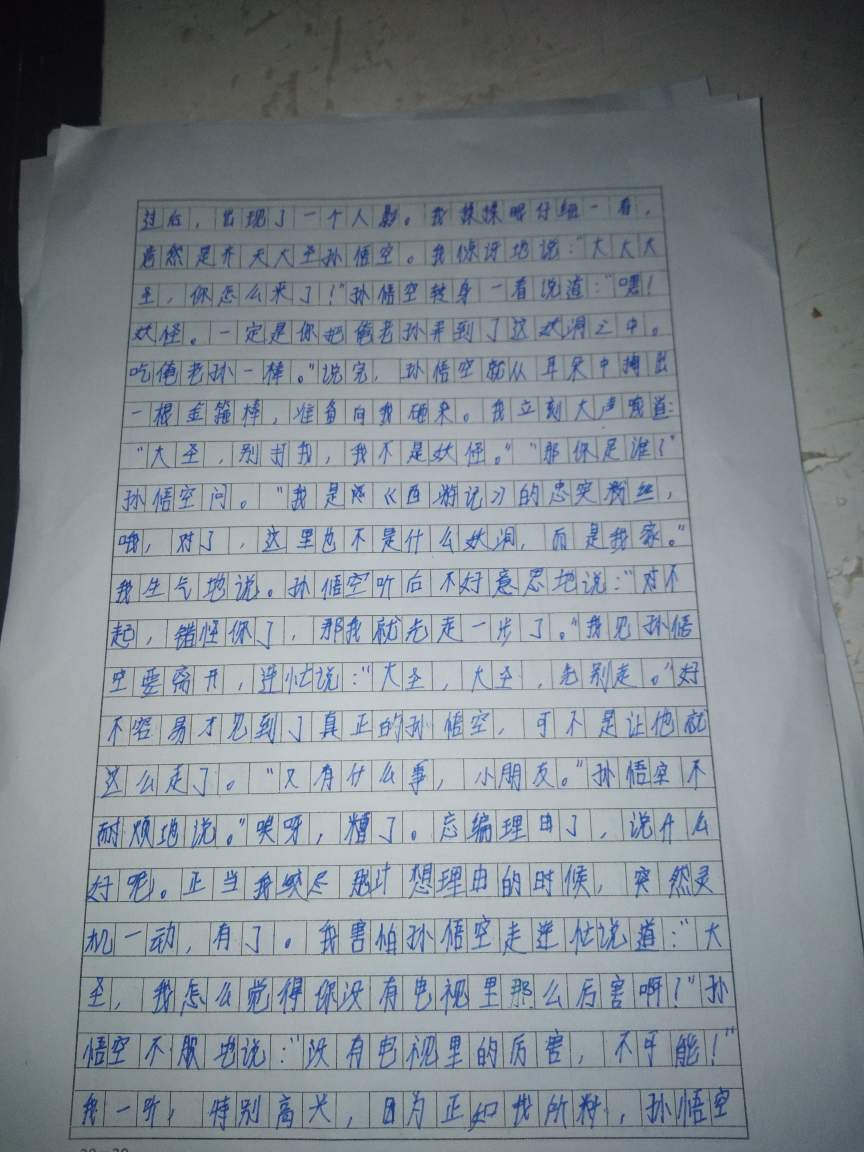 过后，出现了一个人影。我揉揉眼仔细一看，
竟然是齐天大圣孙悟空。我惊讶地说：“大大大
圣，你怎么来了！”孙悟空转身一看说道：“嘿！
妖怪。一定是你把俺老孙弄到了这妖洞之中。
吃俺老孙一棒。”说完，孙悟空就从耳朵中掏出
一根金箍棒，准备向我砸来。我立刻大声喊道：
“大圣，别打我，我不是妖怪。”“那你是谁？”
孙悟空问。“我是《西游记》的忠实粉丝，
哦，对了，这里也不是什么妖洞，而是我家。”
我生气地说。孙悟空听后不好意思地说：“对不
起，错怪你了，那我就先走一步了。”我见孙悟
空要离开，连忙说：“大圣，大圣，先别走。”好
不容易才见到了真正的孙悟空，可不是让他就
这么走了。“又有什么事，小朋友。”孙悟空不
耐烦地说。”哎呀，糟了。忘编理由了，说什么
好呢。正当我绞尽脑汁想理由的时候，突然灵
机一动，有了。我害怕孙悟空走连忙说道：“大
圣，我怎么觉得你没有电视里那么厉害啊！”孙
悟空不服地说：“没有电视里的厉害，不可能！”
我一听，特别高兴，因为正如我所料，孙悟空